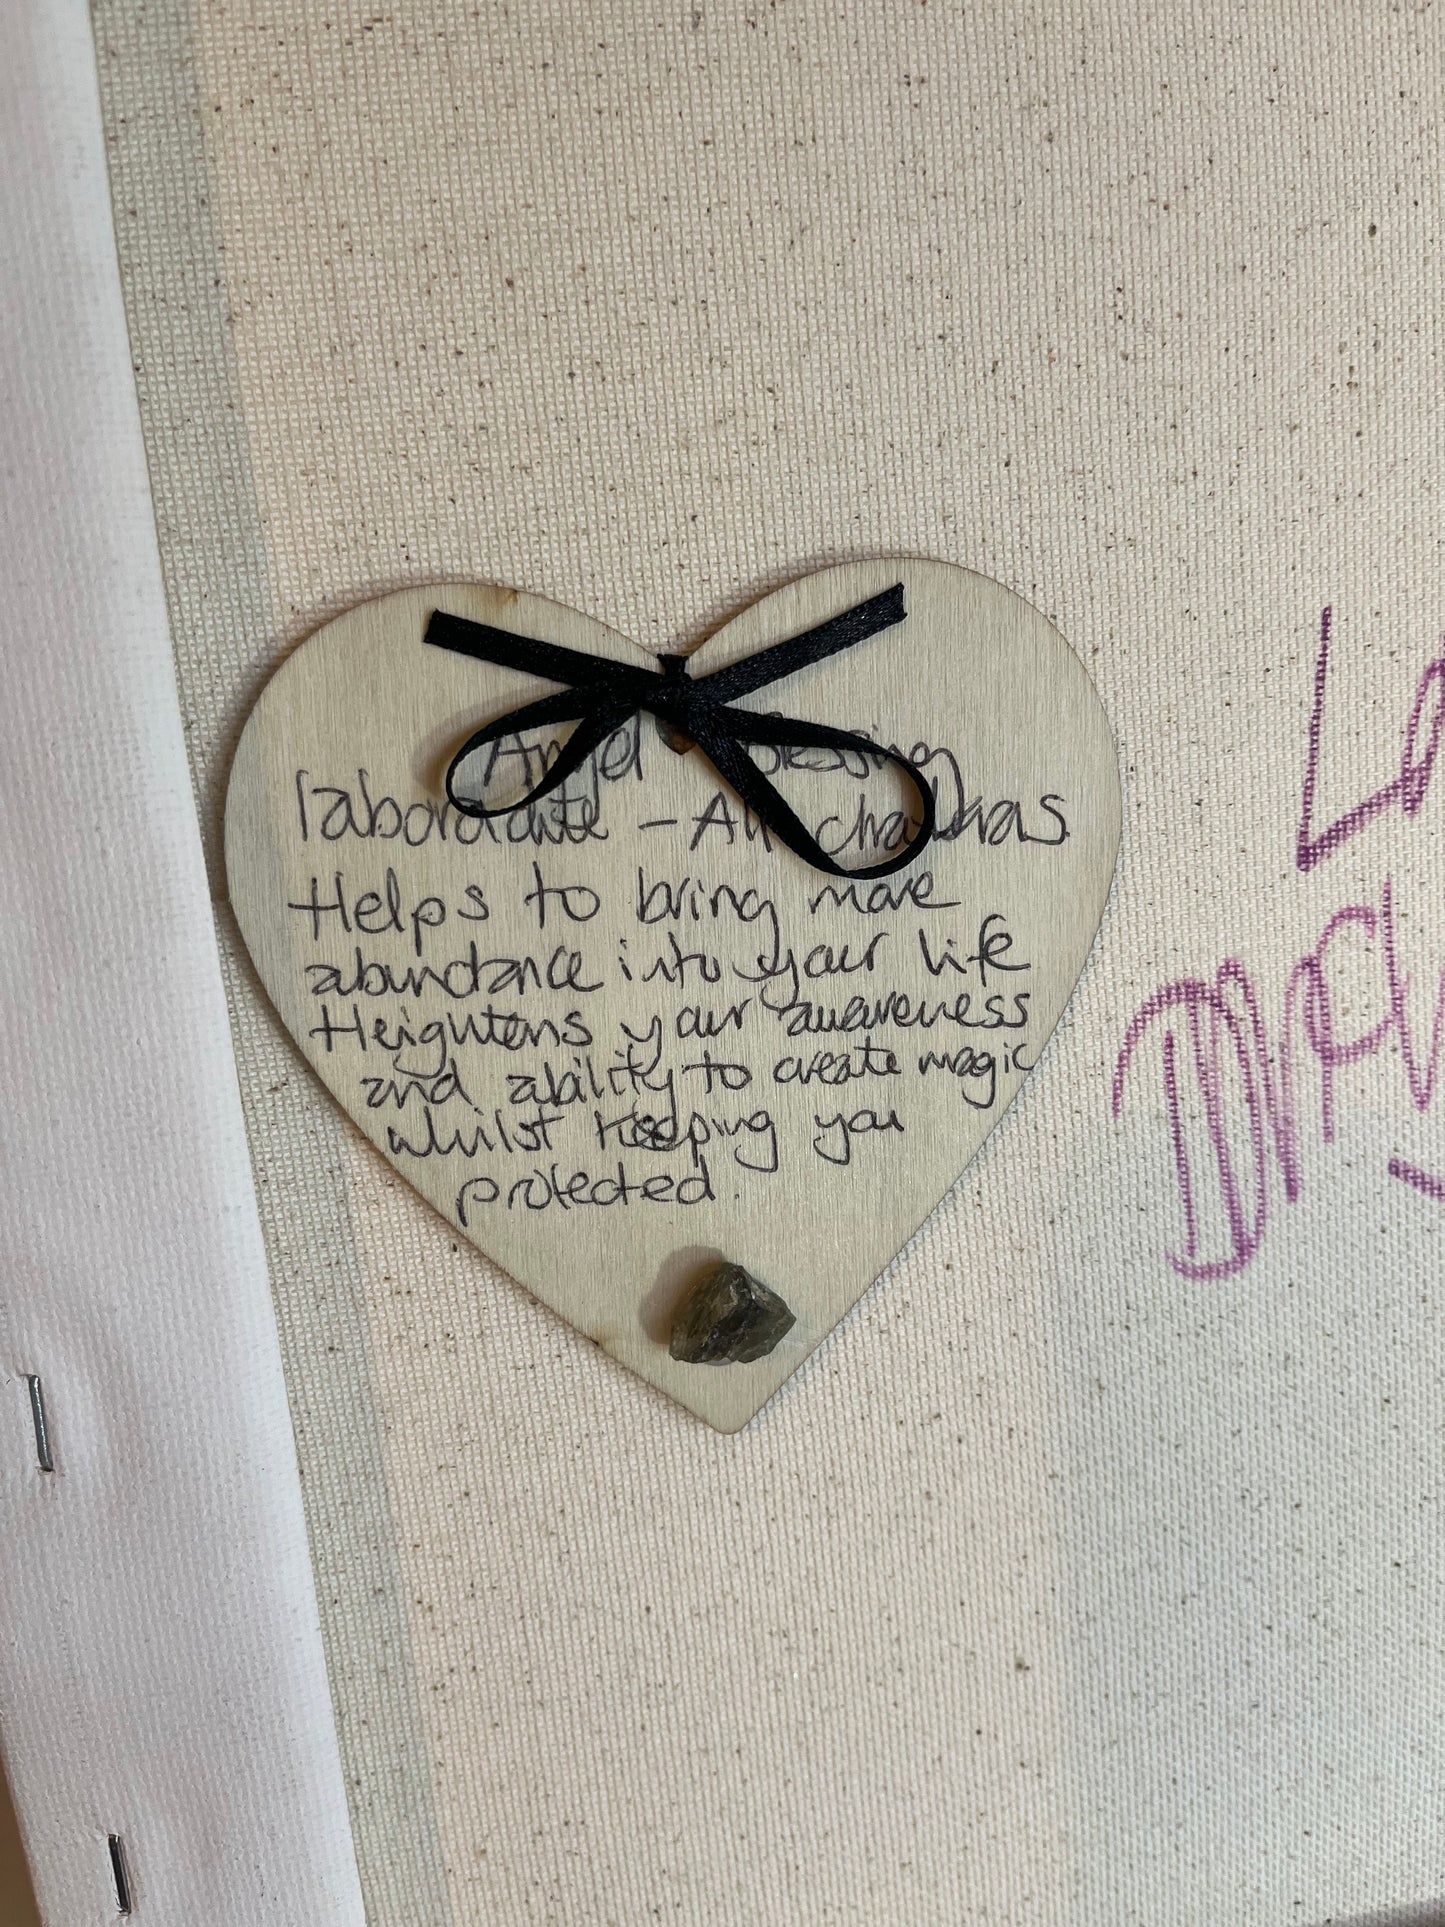 Angel blessing
labordate - All chakras
Helps to bring more
abundance into your life
Heightens your awareness
and ability to create magic
whilst keeping you
protected.